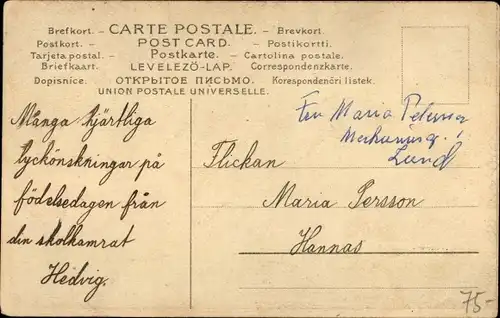 Brefkort. – CARTE POSTALE. – Brevkort.
Postkort. – POST CARD. – Postikortti.
Tarjeta postal. – Postkarte. – Cartolina postale.
Briefkaart. – LEVELEZŐ-LAP. – Correspondenzkarte.
Dopisnice. – ОТКРЫТОЕ ПИСЬМО. – Korespondenční listek.
UNION POSTALE UNIVERSELLE.
Många hjärtliga
lyckönskningar på
födelsedagen från
din skolkamrat
Hedvig.
Fru Maria
Lund
Flickan
Maria Persson
Hannas
75-